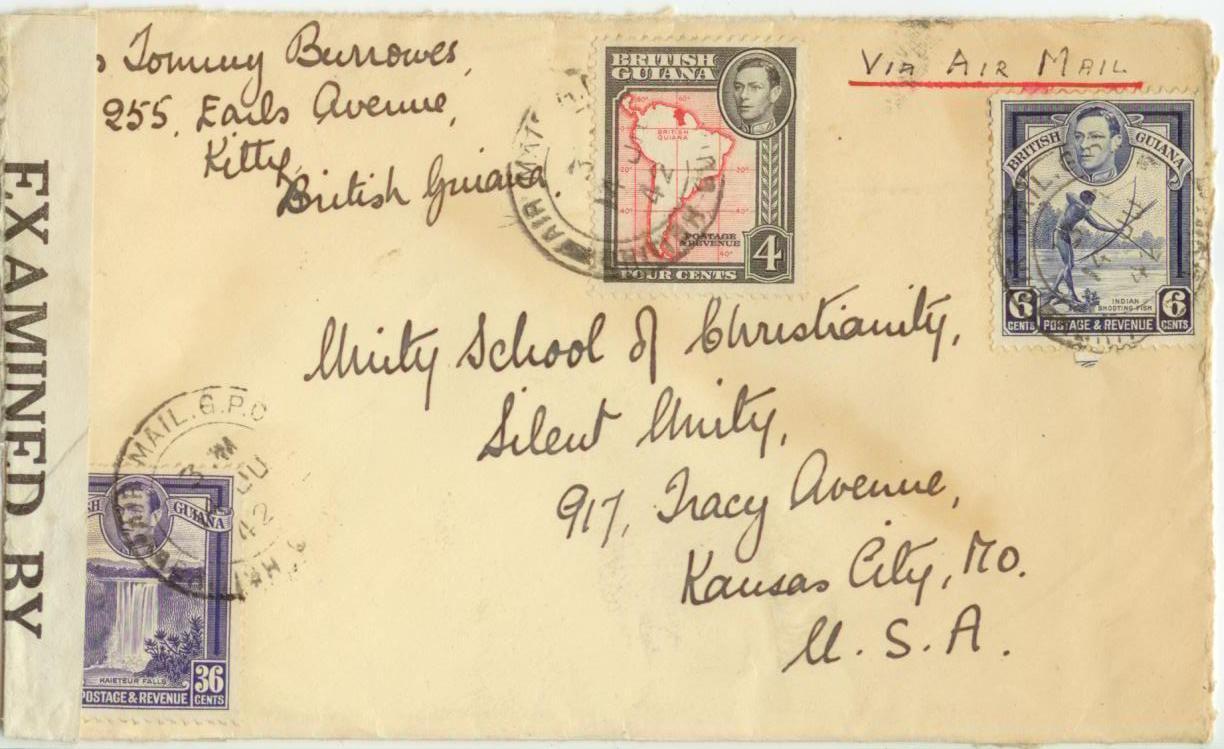 Tommy Burrowes,
255, Earls Avenue,
Kitty,
British Guiana.
VIA AIR MAIL
BRITISH
GUIANA
BRITISH
GUIANA
POSTAGE
& REVENUE
FOUR CENTS 4
BRITISH GUIANA
INDIAN
SHOOTING FISH
6 CENTS POSTAGE & REVENUE 6 CENTS
Unity School of Christianity,
Silent Unity,
917, Tracy Avenue,
Kansas City, Mo.
U. S. A.
EXAMINED BY
MAIL. G.P.O
JU
42
GUIANA
KAIETEUR FALLS
POSTAGE & REVENUE 36 CENTS